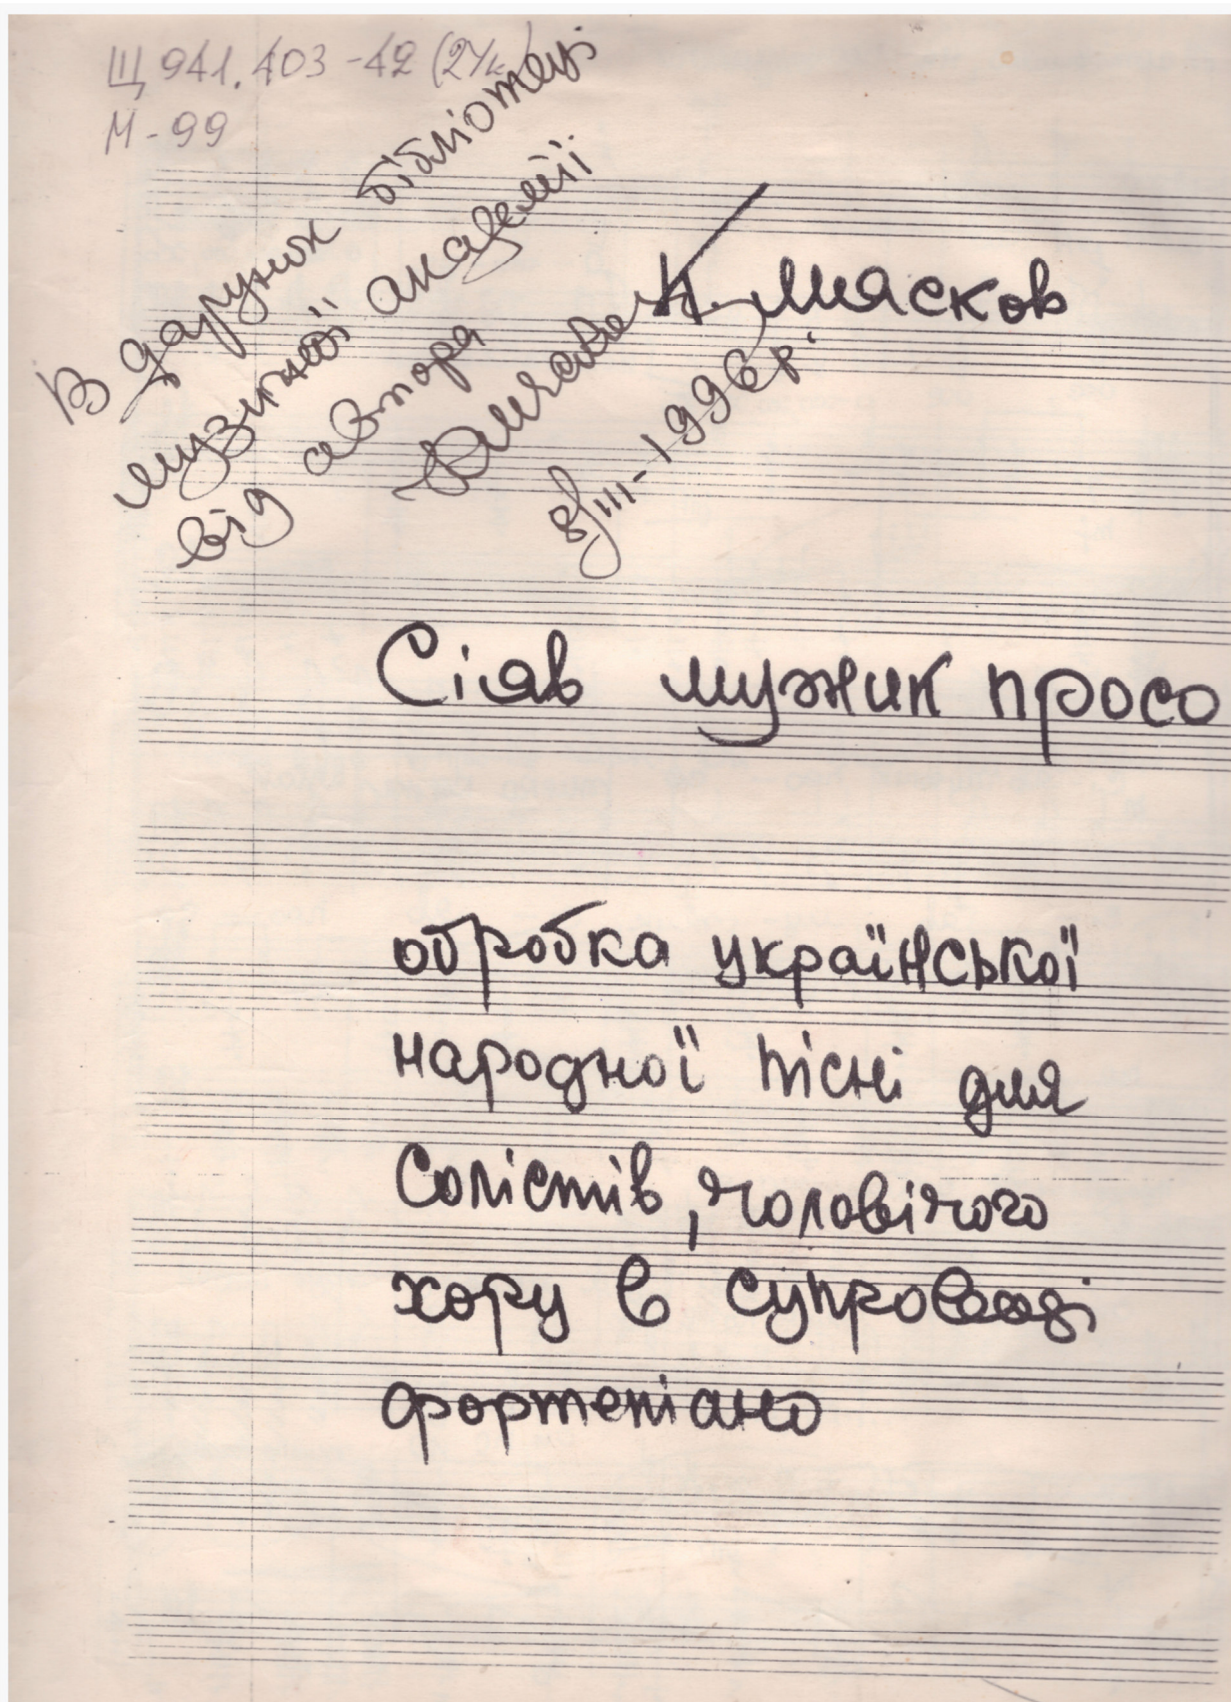 Щ 941.403-42 (2Ук)
М-99
В дарунок бібліотеці
музичної академії
від автора
8/III-1996р.
К. Мясков
Сіяв мужик просо
обробка української
народної пісні для
Солістів, чоловічого
хору в супроводі
фортепіано